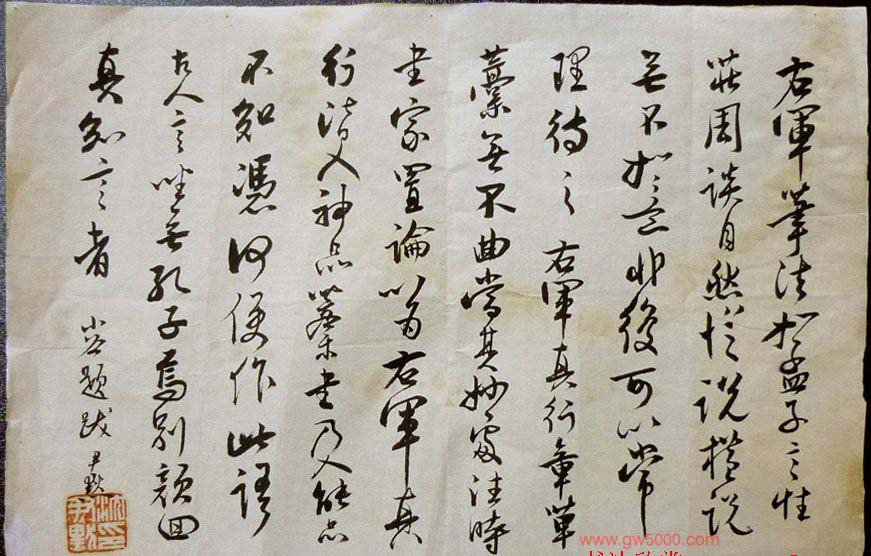 右軍筆法如孟子言性
莊周談自然縱說橫說
無不如意非復可以常
理待之右軍真行章草
藁無不曲當其妙處往時
書家置論以為右軍真
行皆入神品藁書乃入能品
不知憑何便作此語
古人言坐無孔子焉別顏回
真知言者
山谷題跋 尹默
www.gw5000.com